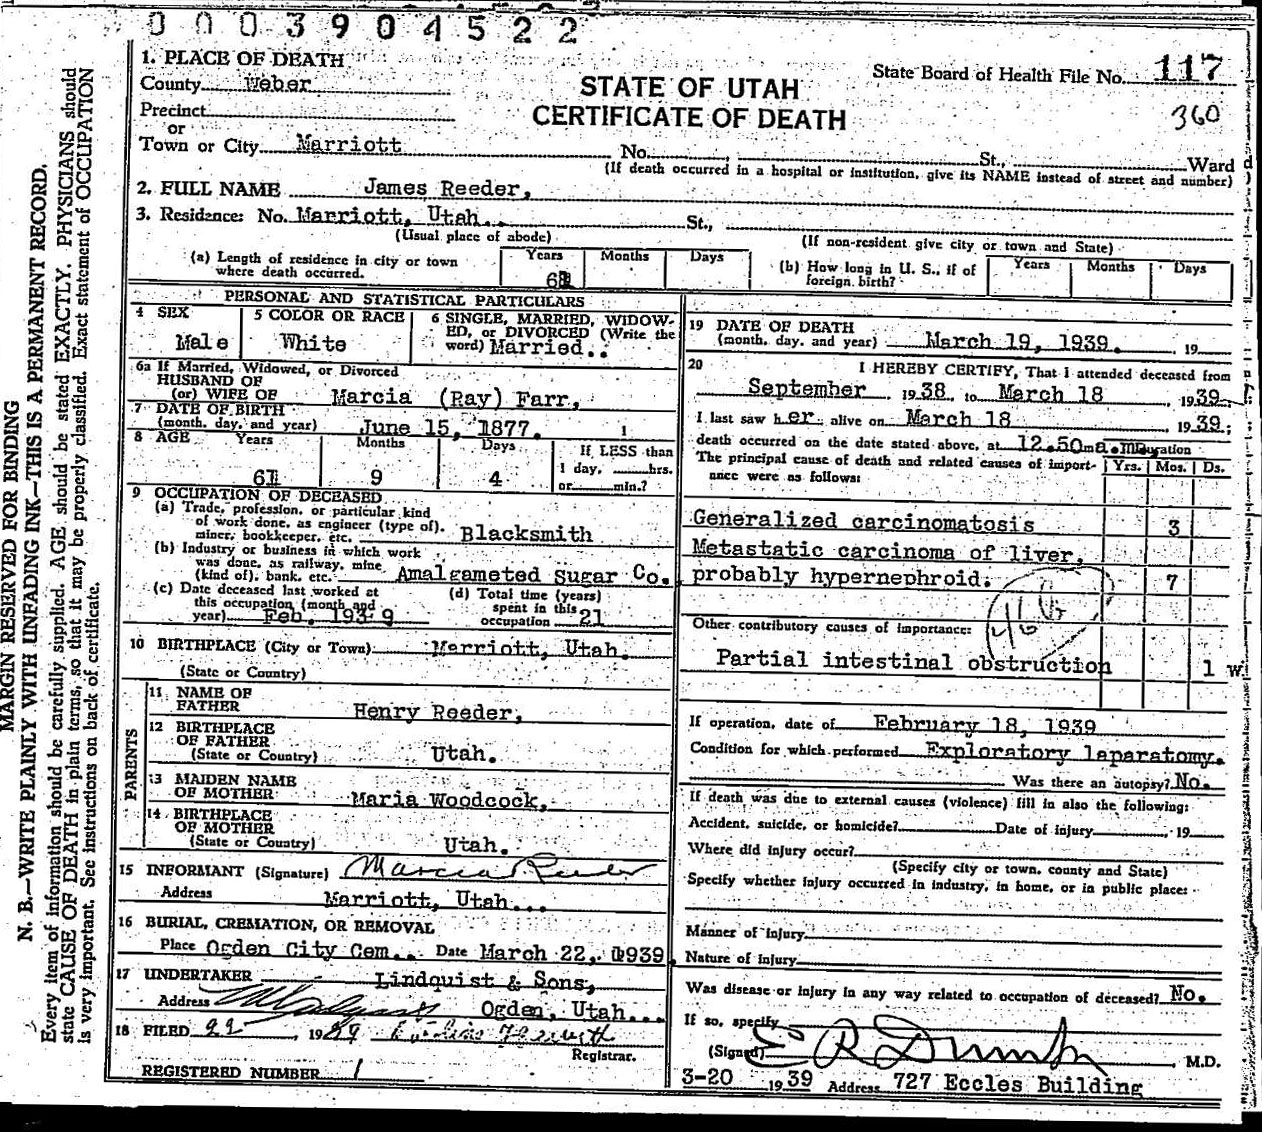 0003904522
1. PLACE OF DEATH
County Weber
Precinct
or
Town or City Marriott
STATE OF UTAH
CERTIFICATE OF DEATH
State Board of Health File No. 117
360
No. St., Ward
(If death occurred in a hospital or institution, give its NAME instead of street and number)
2. FULL NAME James Reeder,
3. Residence: No. Marriott, Utah.. St.,
(Usual place of abode) (If non-resident give city or town and State)
(a) Length of residence in city or town where death occurred. Years 61 Months Days
(b) How long in U. S., if of foreign birth? Years Months Days
PERSONAL AND STATISTICAL PARTICULARS
4 SEX Male
5 COLOR OR RACE White
6 SINGLE, MARRIED, WIDOW-
ED, or DIVORCED (Write the
word) Married..
6a If Married, Widowed, or Divorced
HUSBAND OF
(or) WIFE OF Marcia (Ray) Farr,
7 DATE OF BIRTH
(month, day, and year) June 15, 1877.
8 AGE Years 61 Months 9 Days 4
If LESS than
1 day, hrs.
or min.?
9 OCCUPATION OF DECEASED
(a) Trade, profession, or particular kind
of work done, as engineer (type of),
miner, bookkeeper, etc. Blacksmith
(b) Industry or business in which work
was done, as railway, mine
(kind of), bank, etc. Amalgameted Sugar Co.
(c) Date deceased last worked at
this occupation (month and
year) Feb. 1939
(d) Total time (years)
spent in this
occupation 21
10 BIRTHPLACE (City or Town) Marriott, Utah.
(State or Country)
PARENTS
11 NAME OF
FATHER Henry Reeder,
12 BIRTHPLACE
OF FATHER
(State or Country) Utah.
13 MAIDEN NAME
OF MOTHER Maria Woodcock,
14 BIRTHPLACE
OF MOTHER
(State or Country) Utah.
15 INFORMANT (Signature) Marcia Reeder
Address Marriott, Utah...
16 BURIAL, CREMATION, OR REMOVAL
Place Ogden City Cem.. Date March 22, 1939
17 UNDERTAKER Lindquist & Sons,
Address Ogden, Utah...
18 FILED 22 19
Registrar.
REGISTERED NUMBER 1
19 DATE OF DEATH
(month, day, and year) March 19, 1939. 19
20 I HEREBY CERTIFY, That I attended deceased from
September 1938, to March 18, 1939
I last saw her alive on March 18, 1939;
death occurred on the date stated above, at 12.50 a.m. Duration
The principal cause of death and related causes of import-
ance were as follows: Yrs. Mos. Ds.
Generalized carcinomatosis 3
Metastatic carcinoma of liver,
probably hypernephroid. 7
Other contributory causes of importance:
Partial intestinal obstruction 1 w.
If operation, date of February 18, 1939
Condition for which performed Exploratory laparatomy.
Was there an autopsy? No.
If death was due to external causes (violence) fill in also the following:
Accident, suicide, or homicide? Date of injury, 19
Where did injury occur?
(Specify city or town, county and State)
Specify whether injury occurred in industry, in home, or in public place:
Manner of injury
Nature of injury
Was disease or injury in any way related to occupation of deceased? No.
If so, specify
(Signed) E R Dumke, M.D.
3-20 1939 Address 727 Eccles Building
MARGIN RESERVED FOR BINDING
N. B.—WRITE PLAINLY WITH UNFADING INK—THIS IS A PERMANENT RECORD.
Every item of information should be carefully supplied. AGE should be stated EXACTLY. PHYSICIANS should
state CAUSE OF DEATH in plain terms, so that it may be properly classified. Exact statement of OCCUPATION
is very important. See instructions on back of certificate.